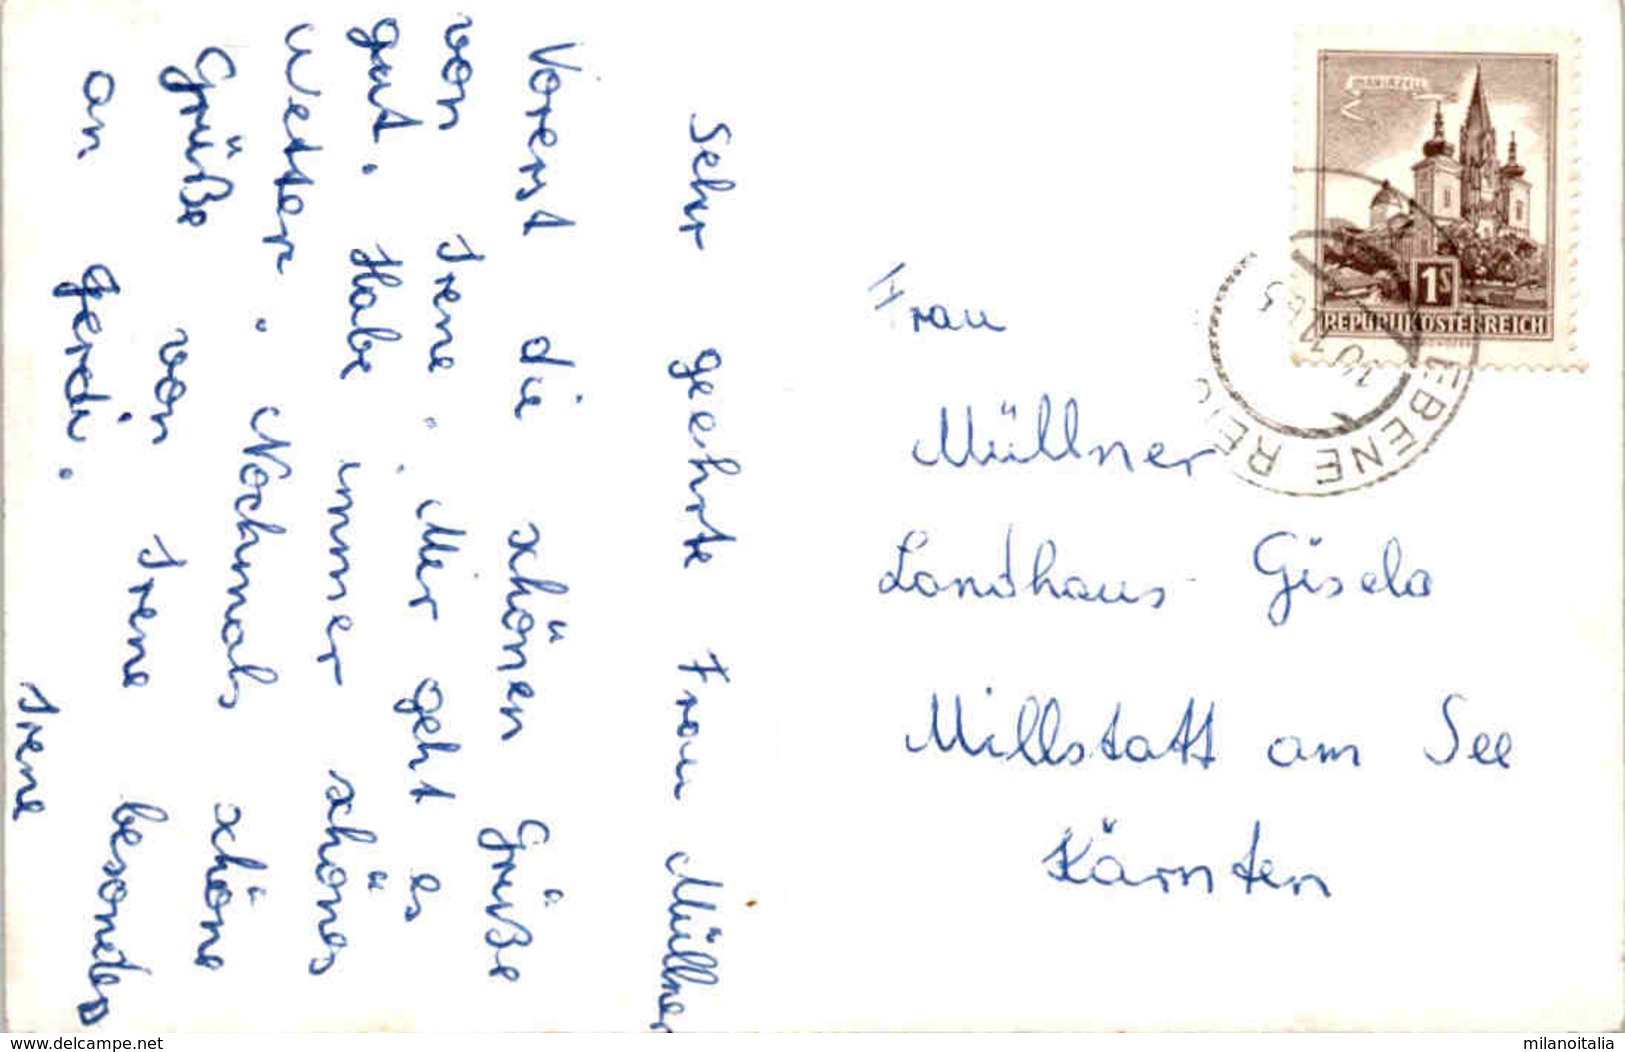 Sehr geehrte Frau Müllner
Vorerst die schönen Grüße
von Irene. Mir geht es
gut. Habe immer schönes
Wetter. Nochmals schöne
Grüße von Irene besonders
an Gerdi.
Irene
Frau
Müllner
Landhaus Gisela
Millstatt am See
Kärnten
MARIAZELL
1S
REPUBLIK ÖSTERREICH
EBENE REIC
www.delcampe.net
milanoitalia